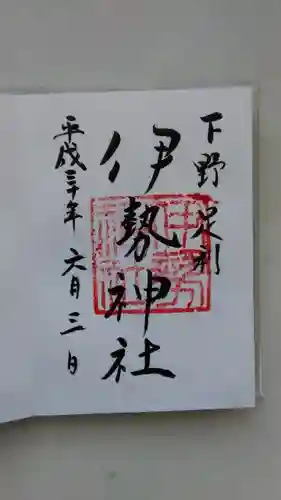 下野足利
伊勢神社
平成三十年 六月三日